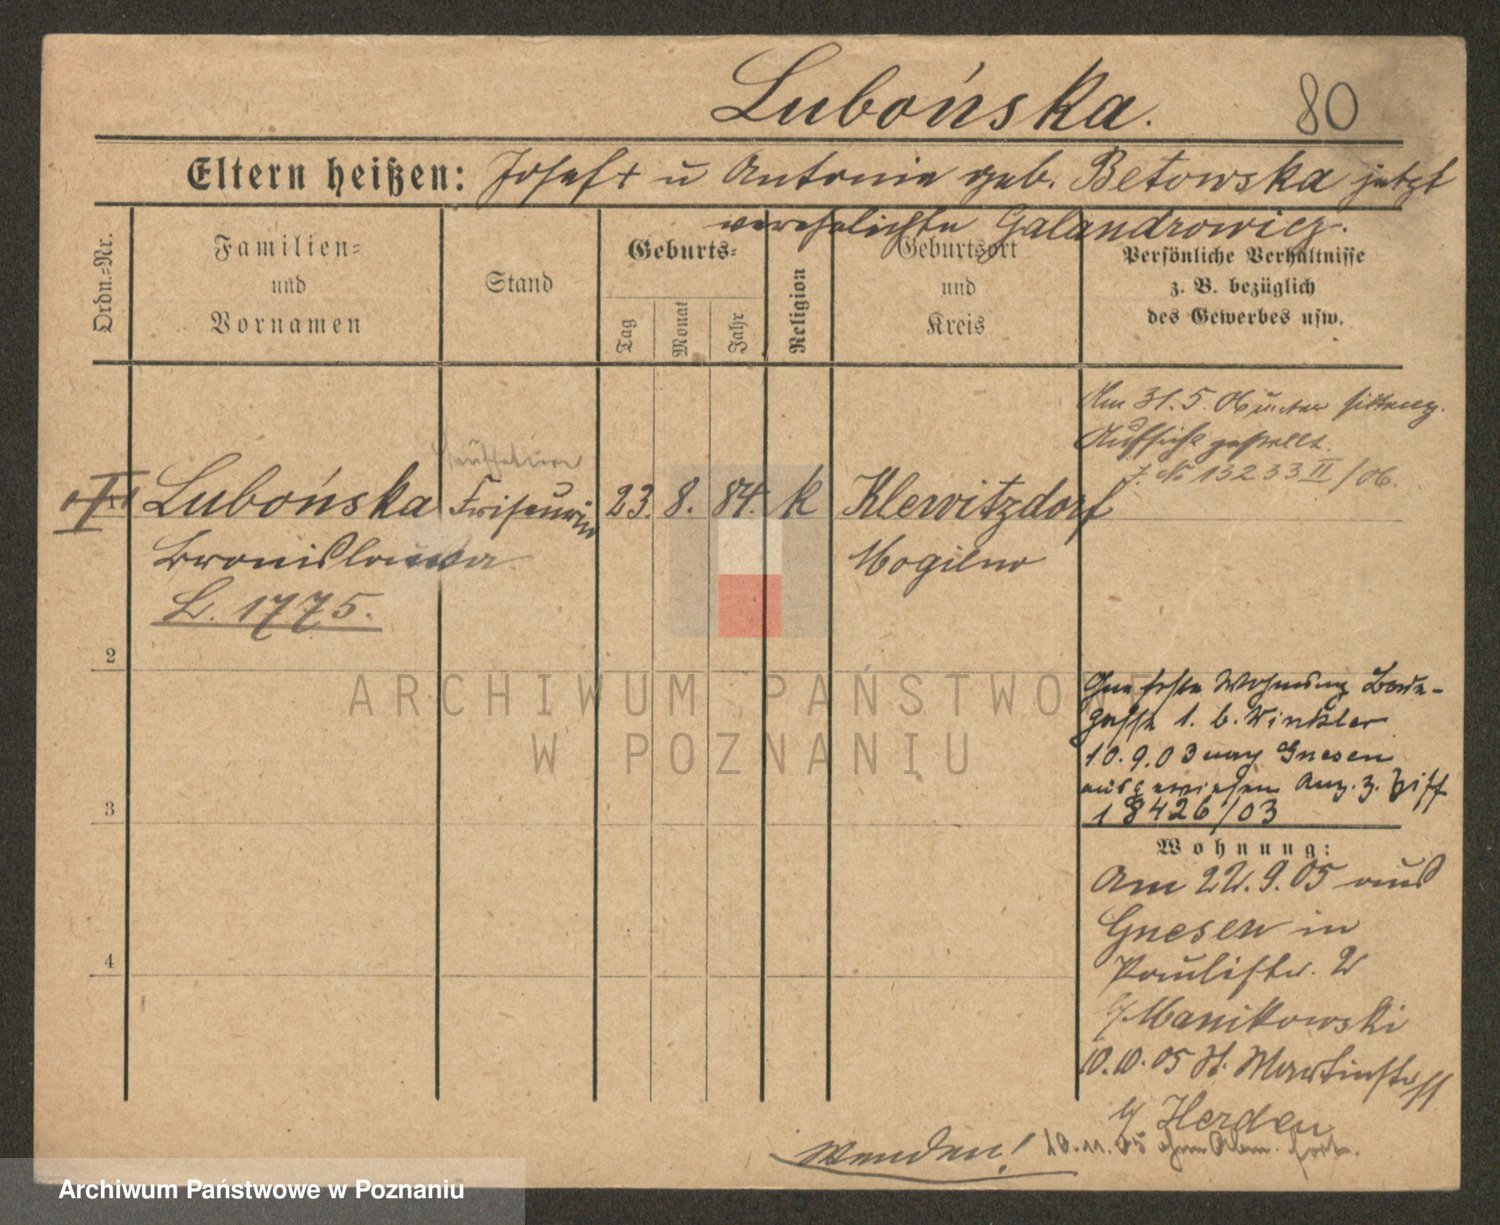 Lubońska. 80
Eltern heißen: Josef + u Antonie geb. Betowska jetzt
verehelichte Galandrowicz.
Ordn.=Nr.
Familien=
und
Vornamen
Stand
Geburts=
Tag
Monat
Jahr
Religion
Geburtsort
und
Kreis
Persönliche Verhältnisse
z. B. bezüglich
des Gewerbes usw.
Am 31.5.06 unter sittenp.
Aufsicht gestellt.
J. No 13233 II/06.
Lubońska Friseurin 23. 8. 84. k Klewitzdorf
Bronislawa Mogilno
L. 1775.
2
3
4
Ohne feste Wohnung
gasse 1. b. Winkler
10.9.03 nach Gnesen
ausgewiesen Anz. z.
18426/03
Wohnung:
Am 22.9.05 aus
Gnesen in
Paulistr. 2
b/ Manikowski
10.10.05 St. Martinstr
b/ Herden
Wenden! 10.11.05 ohne Abm. fort.
ARCHIWUM PAŃSTWOWE
W POZNANIU
Archiwum Państwowe w Poznaniu